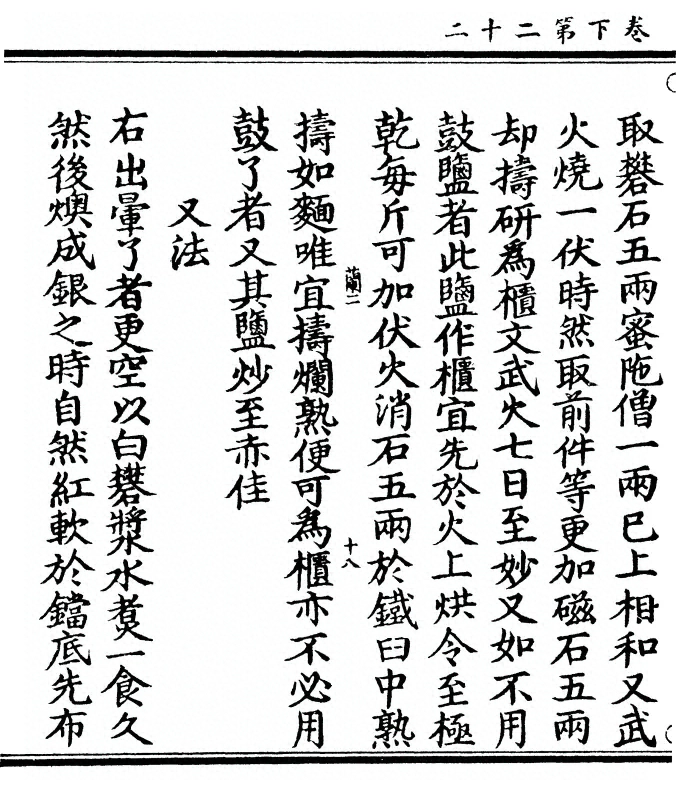 卷下第二十二
取礬石五兩蜜陁僧一兩已上相和又武
火燒一伏時然取前件等更加磁石五兩
却擣研爲櫃文武火七日至妙又如不用
鼓鹽者此鹽作櫃宜先於火上烘令至極
乾每斤可加伏火消石五兩於鐵臼中熟
蘭二
十八
擣如麵唯宜擣爛熟便可爲櫃亦不必用
鼓了者又其鹽炒至赤佳
又法
右出暈了者更空以白礬漿水煑一食久
然後燠成銀之時自然紅軟於鐺底先布